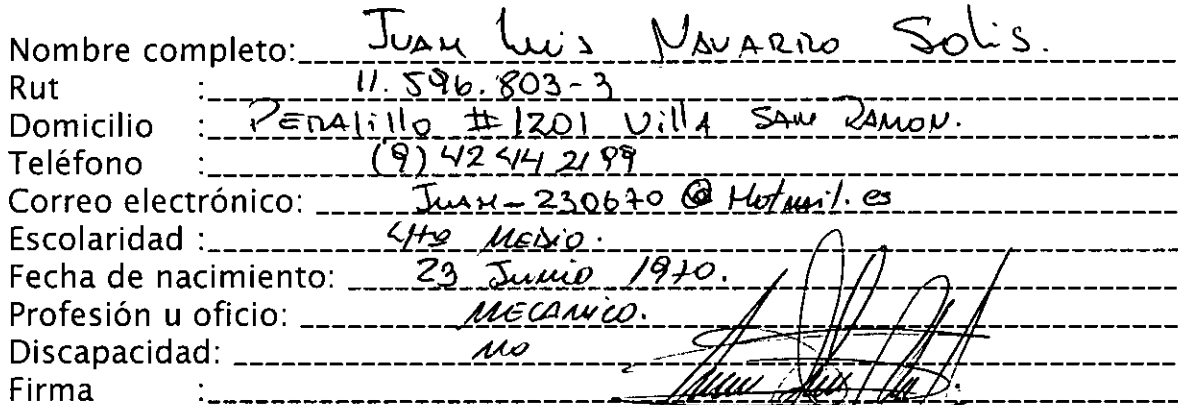 Nombre completo: Juan Luis Navarro Solis.
Rut : 11.596.803-3
Domicilio : Peralillo #1201 Villa San Ramon.
Teléfono : (9) 42442199
Correo electrónico: Juan-230670@Hotmail.es
Escolaridad : 4to Medio.
Fecha de nacimiento: 23 Junio 1970.
Profesión u oficio: Mecanico.
Discapacidad: no
Firma :